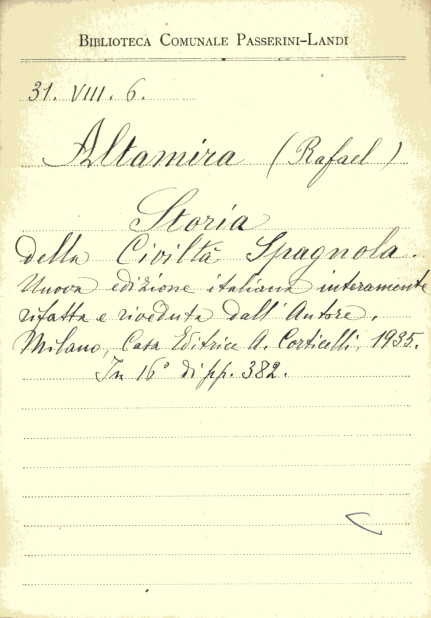 BIBLIOTECA COMUNALE PASSERINI-LANDI
31. VIII. 6.
Altamira (Rafael)
Storia
della Civiltà Spagnola.
Nuova edizione italiana interamente
rifatta e riveduta dall'Autore.
Milano, Casa Editrice A. Corticelli, 1935.
In 16° di pp. 382.